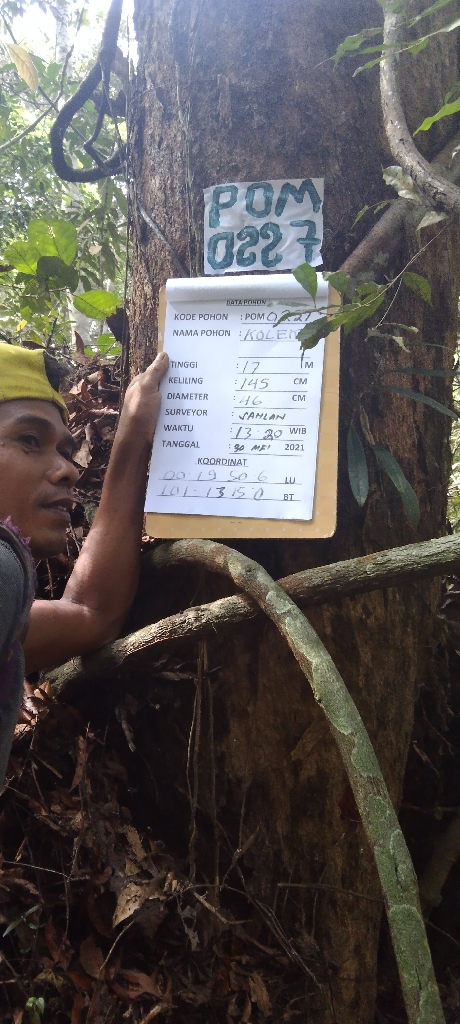 POM
0227
DATA POHON
KODE POHON : POM
NAMA POHON : KOLE
TINGGI : 17 M
KELILING : 145 CM
DIAMETER : 46 CM
SURVEYOR : SAHLAN
WAKTU : 13.20 WIB
TANGGAL : 30 MEI 2021
KOORDINAT
00.19 50 6 LU
101.13 15.0 BT